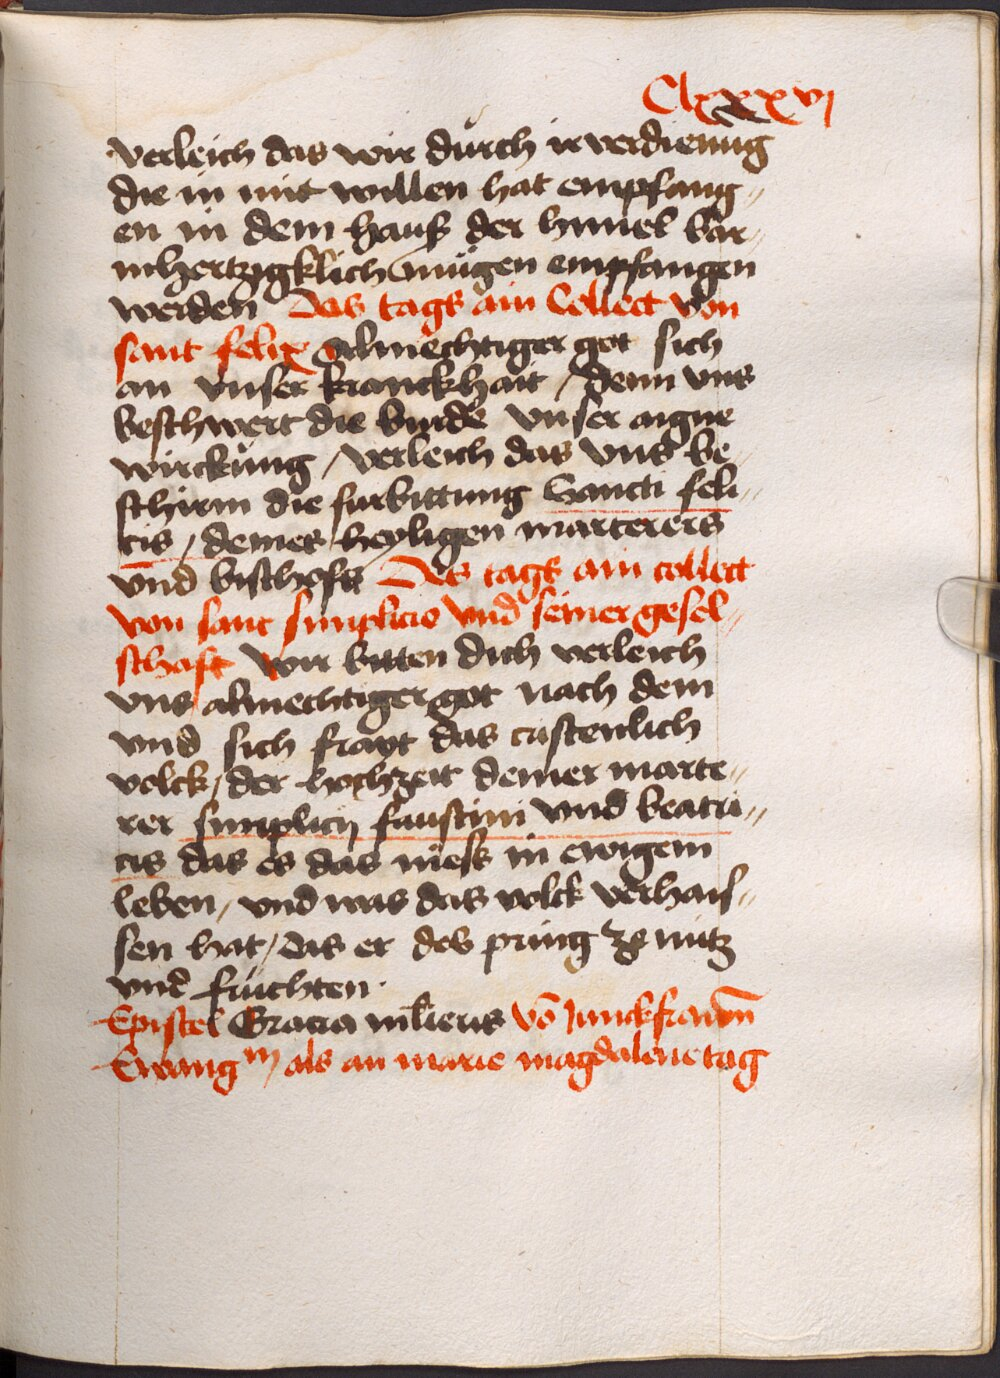 Clxxxvj
verleich das wir durch ir verdienung
die in mit willen hat empfang〃
en in dem hauß der himel bar〃
mhertzigklich mügen empfangen
werden Des tags ain Collect von
sant felix Almechtiger got sich
an vnser kranckhait / denn vns
beschwert die burde vnser aigne
wirckung / verleich das vns be〃
schirm die furbittung Sancti feli〃
cis / deines heyligen marterers
vnd bischofs Des tags ain collect
von sant simplicio vnd seiner gesel〃
schaft Wir bitten dich verleich
vns almechtiger got nach dem
vnd sich frayt das cristenlich
volck / der hochzeit deiner marte〃
rer simplicij faustini vnd beatri〃
cis das es das niess in ewigem
leben / vnd was das volck verhais〃
sen hat / das er des pring zu nutz
vnd fruchten ·
Epistel Gracia mulieris võ junckfrawn
Ewangm als an marie magdalene tag